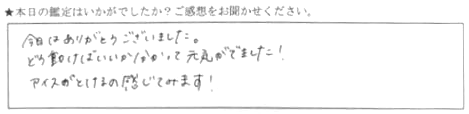 ★本日の鑑定はいかがでしたか？ご感想をお聞かせください。
今日はありがとうございました。
どう動けばいいか分かって元気がでました！
アイスがとけるの感じてみます！